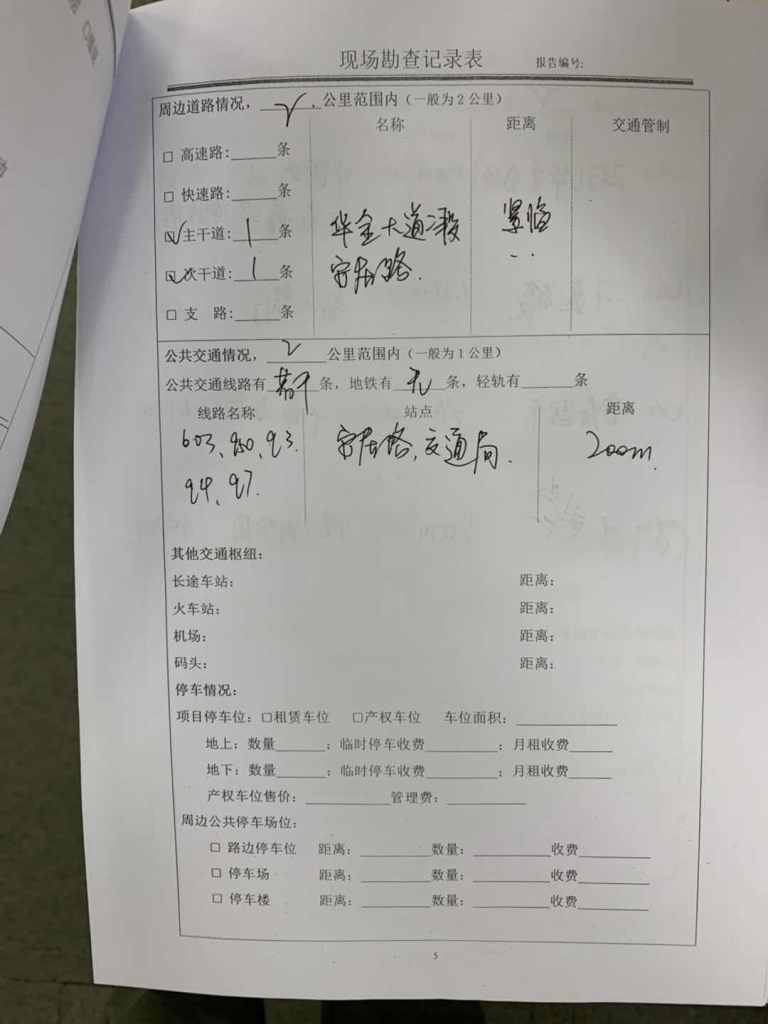 现场勘查记录表 报告编号:
周边道路情况，2，公里范围内（一般为2公里）
名称 距离 交通管制
□ 高速路:_____条
□ 快速路:_____条
☑ 主干道: 1 条 华金大道2段 紧临
☑ 次干道: 1 条 安居路. ..
□ 支 路:_____条
公共交通情况，2 公里范围内（一般为1公里）
公共交通线路有 若干 条，地铁有 无 条，轻轨有______条
线路名称 站点 距离
603、 安居路,交通局. 200m.
其他交通枢纽:
长途车站: 距离:
火车站: 距离:
机场: 距离:
码头: 距离:
停车情况:
项目停车位: □租赁车位 □产权车位 车位面积: ____________
地上: 数量______; 临时停车收费_________; 月租收费_____
地下: 数量______; 临时停车收费_________; 月租收费_____
产权车位售价: __________管理费: _________
周边公共停车场位:
□ 路边停车位 距离: _________数量: _________收费_________
□ 停车场 距离: _________数量: _________收费_________
□ 停车楼 距离: _________数量: _________收费_________
5